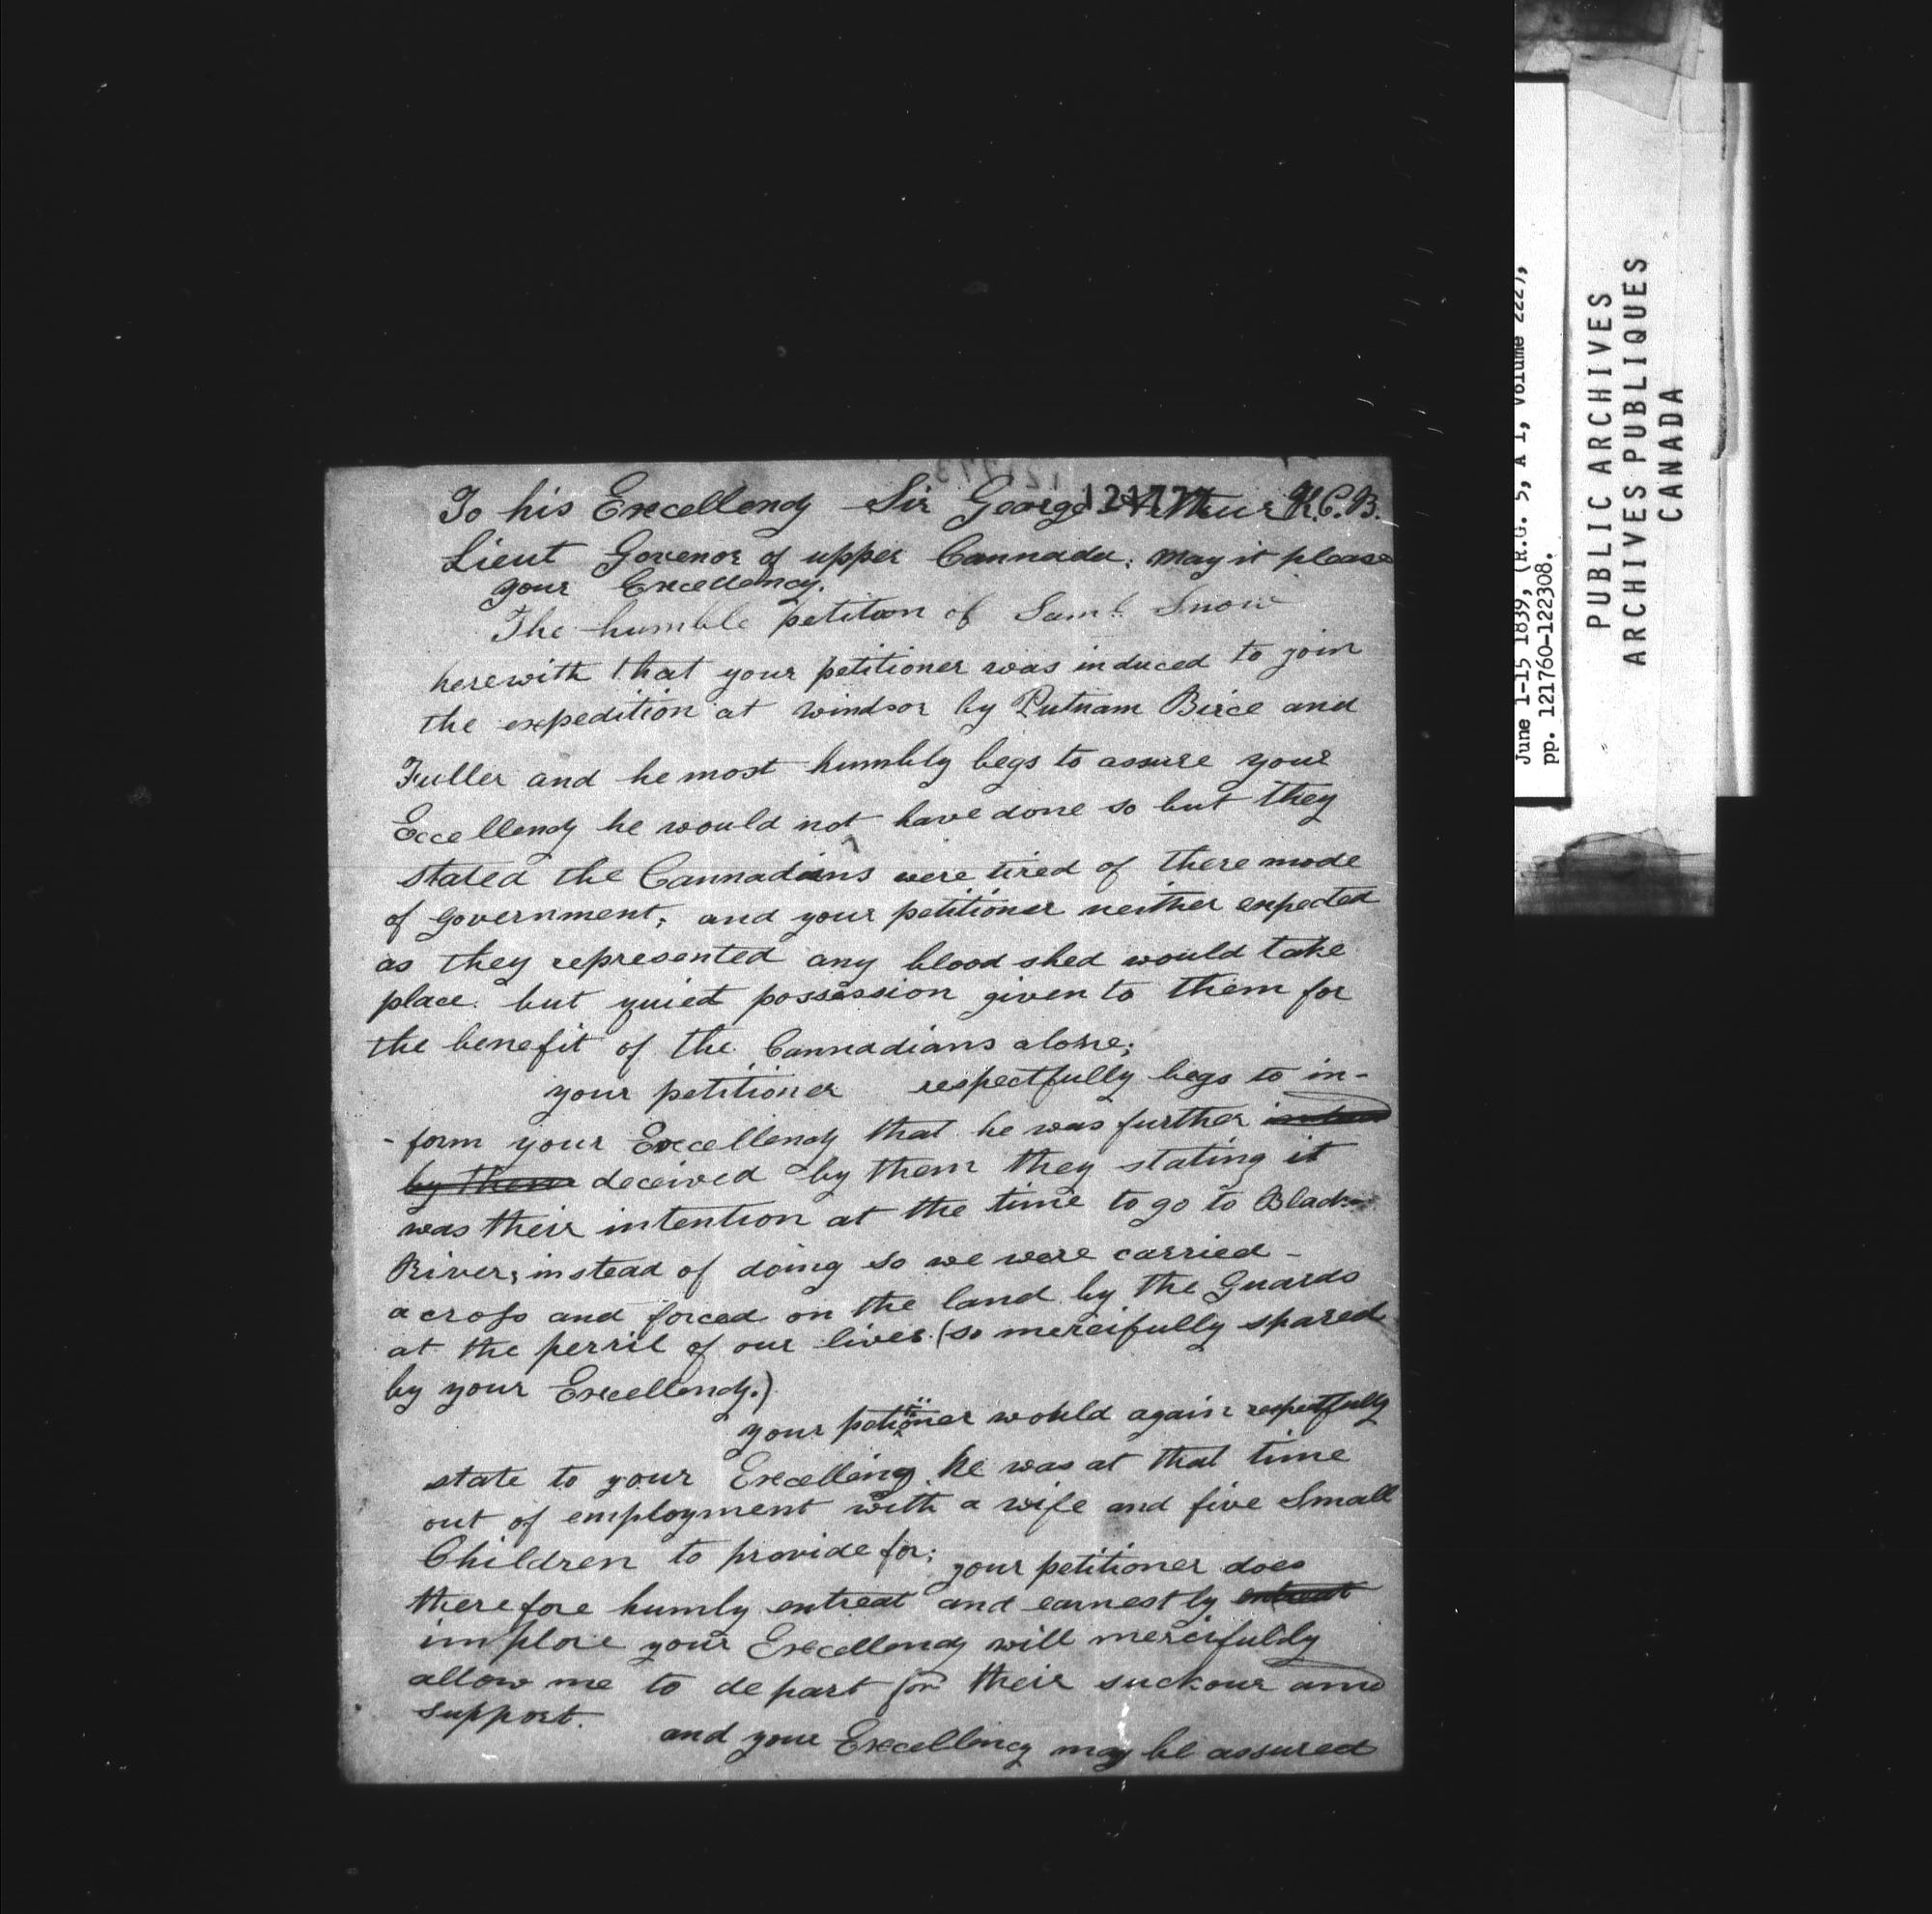 To his Excellency Sir George Arthur K.C.B.
Lieut Govenor of upper Cannada; may it please
your Excellency.
The humble petition of Saml. Snow
herewith that your petitioner was induced to join
the expedition at windsor by Putnam Birce and
Fuller and he most humbly begs to assure your
Exccellency he would not have done so but they
stated the Cannadians were tired of there mode
of government; and your petitioner neither expected
as they represented any blood shed would take
place. but quiet possession given to them for
the benefit of the Cannadians alone;
your petitioner respectfully begs to in-
-form your Excellency that he was further
by them deceived by them they stating it
was their intention at the time to go to Black
River; instead of doing so we were carried -
across and forced on the land by the Guards
at the perril of our lives (so mercifully spared
by your Excellency.)
your petitioner would again respectfully
state to your Excellency he was at that time
out of employment with a wife and five Small
Children to provide for; your petitioner does
therefore humly entreat and earnestly entreat
implore your Excellency will mercifully
allow me to depart for their suckour and
support.
and your Excellency may be assured
June 11-15 1839, (R.G. 5, A 1, Volume 222),
pp. 121760-122308.
PUBLIC ARCHIVES
ARCHIVES PUBLIQUES
CANADA